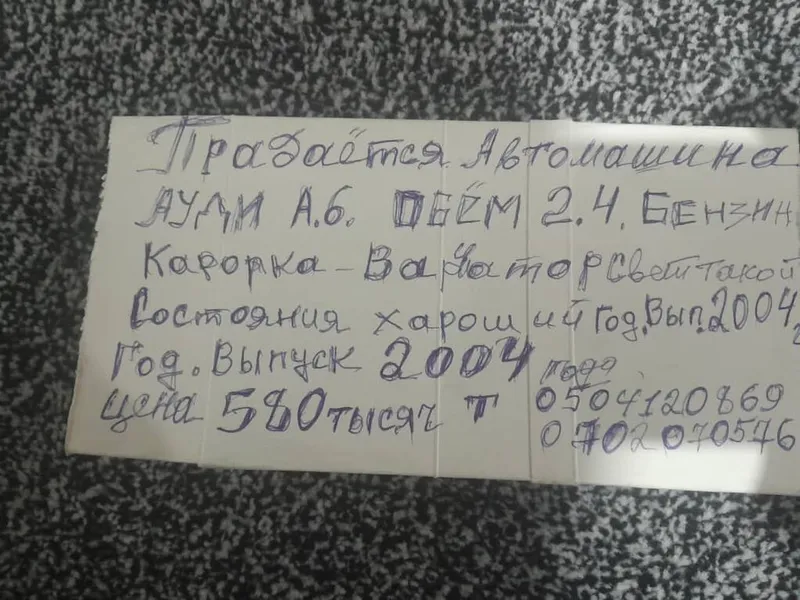 Прадаётся Автомашина
АУДИ А.6. ОБЁМ 2.4. БЕНЗИН
Каропка - Варатор свет такой
Состояния хароший год. Вып. 2004
Год. Выпуск 2004 года
цена 580 тысяч т 0504120869
0702070576